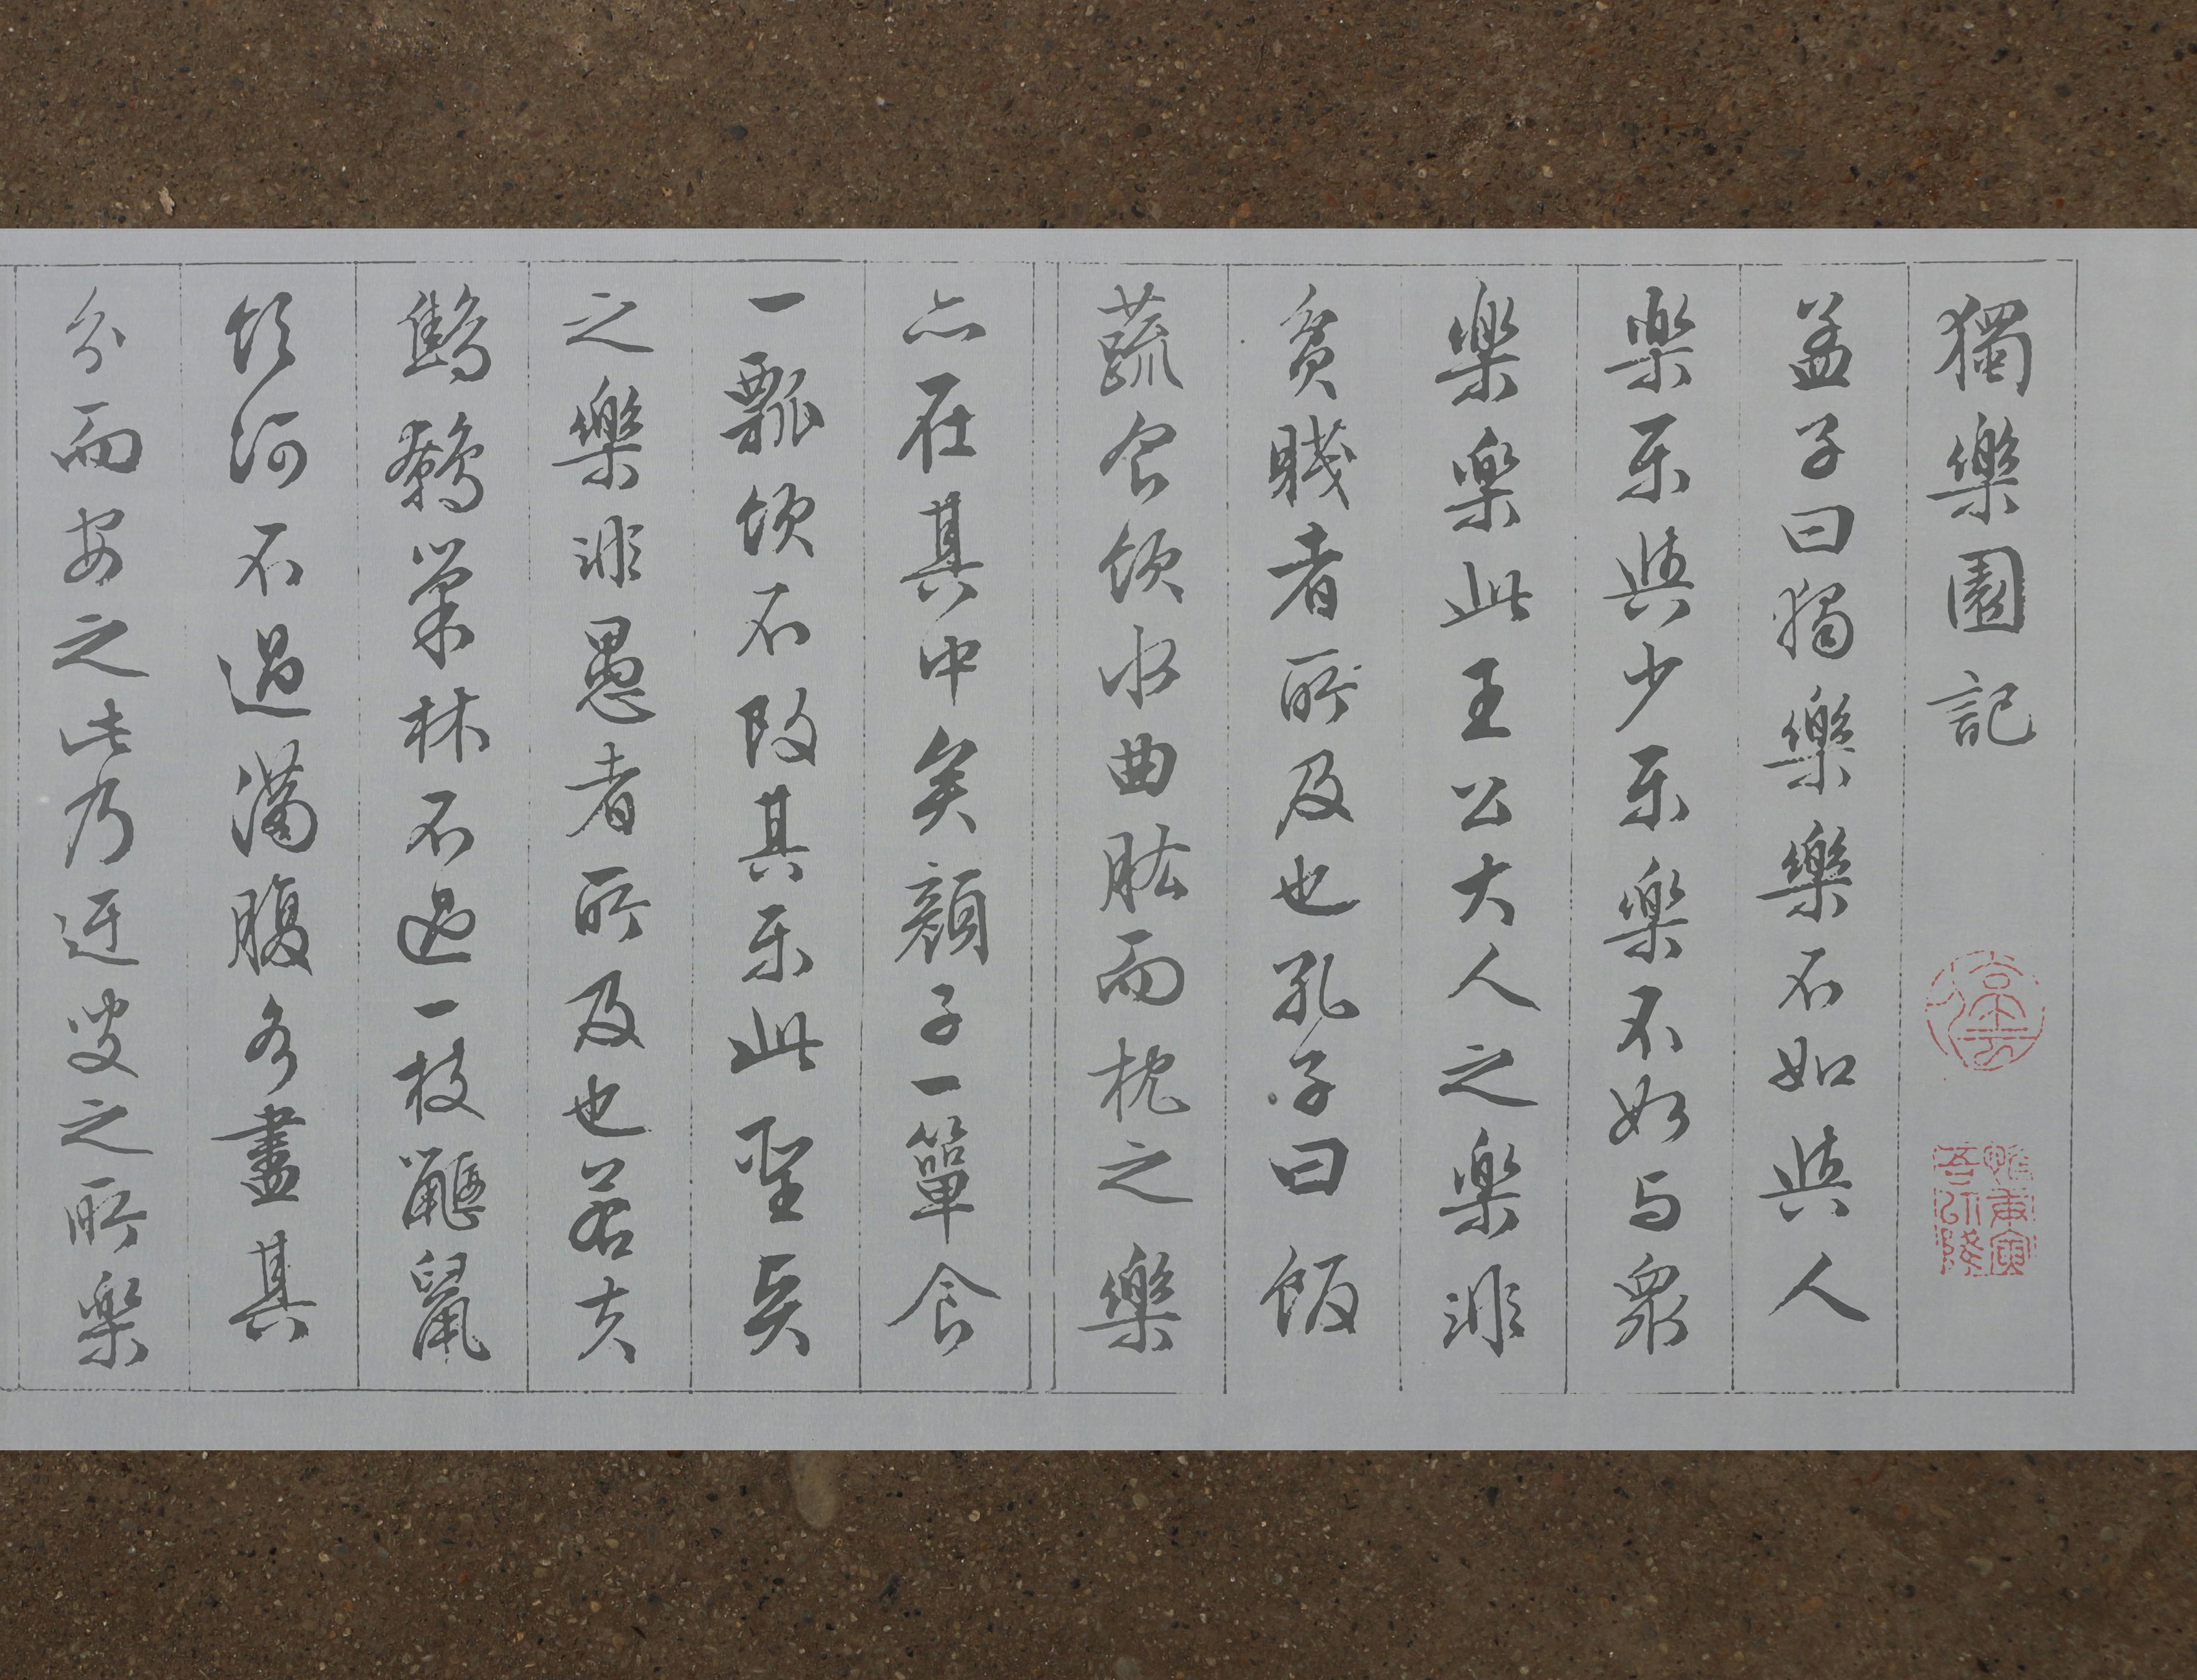 獨樂園記
孟子曰獨樂樂不如與人
樂樂與少樂樂不如与衆
樂樂此王公大人之樂非
貧賤者所及也孔子曰飯
蔬食飲水曲肱而枕之樂
亦在其中矣顏子一簞食
一瓢飲不改其樂此聖賢
之樂非愚者所及也若夫
鷦鷯巢林不過一枝鼴鼠
飲河不過滿腹各盡其
分而安之此乃迂叟之所樂